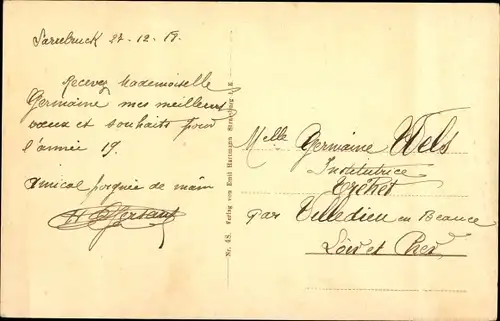 Sarrebruck 27-12-18.
Recevez Mademoiselle
Germaine mes meilleurs
vœux et souhaits pour
l'année 19.
Amical poignée de main
Nr. 48. Verlag von Emil Hartmann Strassburg i. E.
Melle Germaine Wels
Institutrice
par Villedieu en Beauce
Loir et Cher